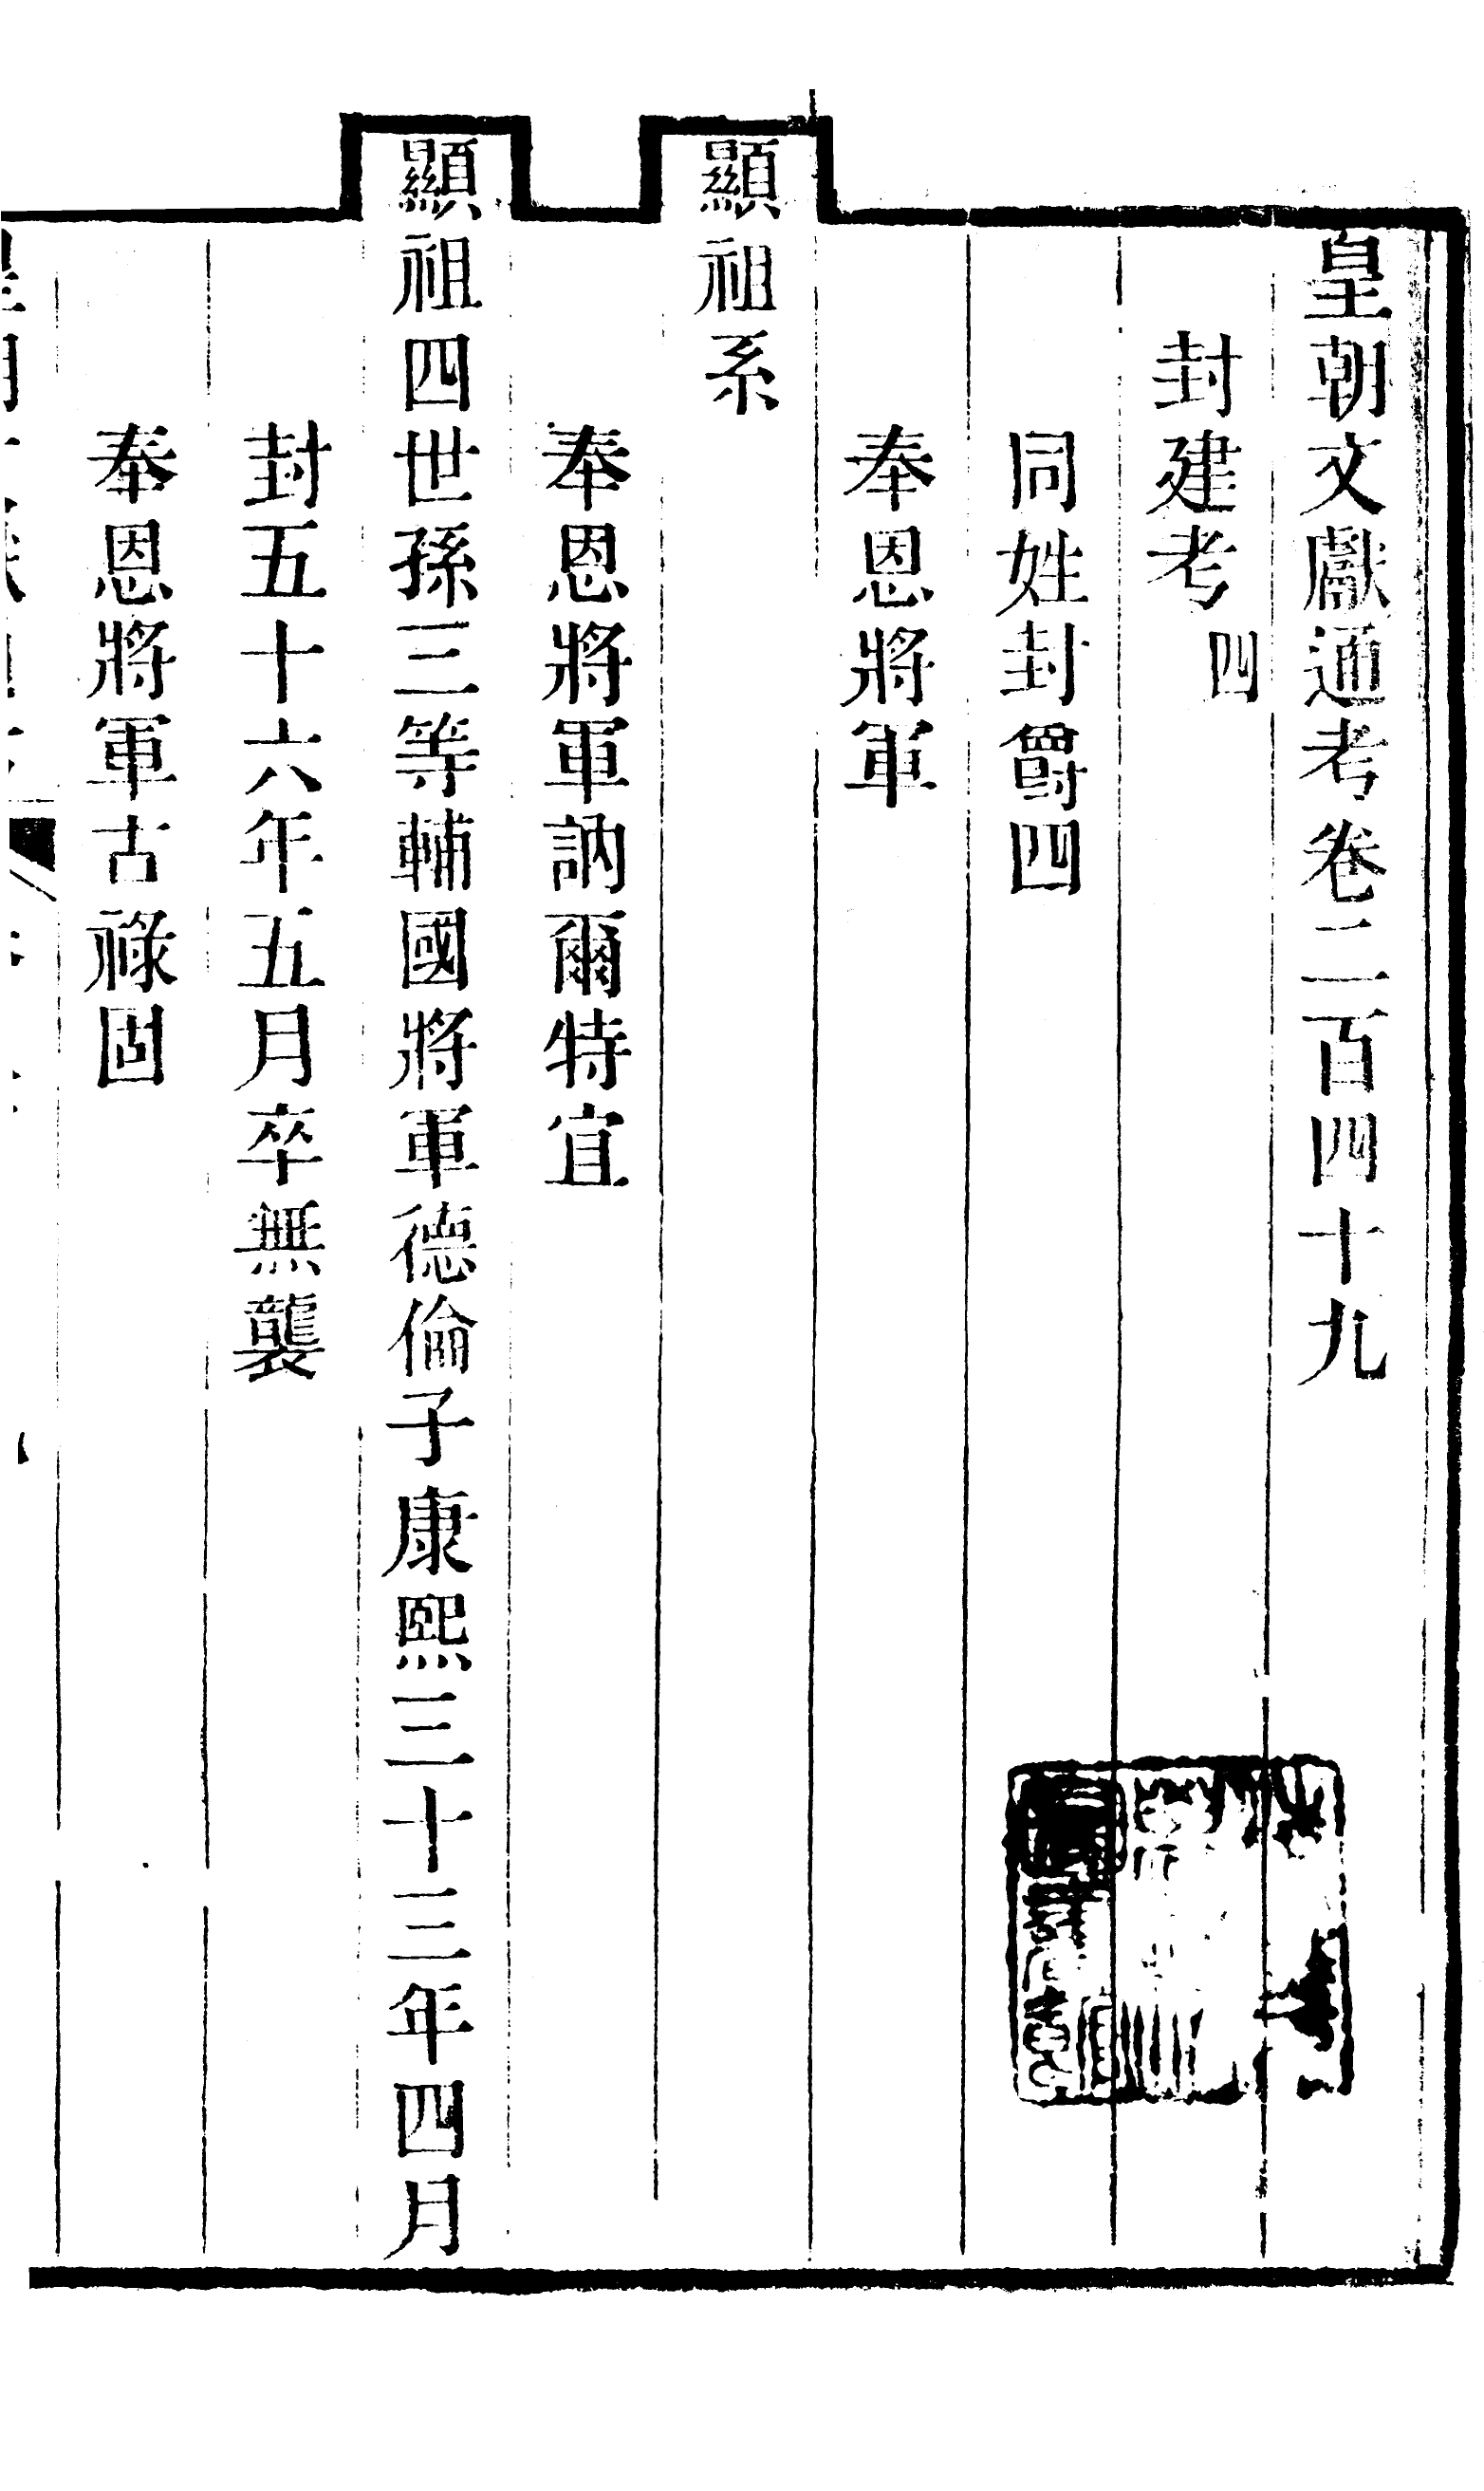 皇朝文獻通考卷二百四十九
封建考四
同姓封爵四
奉恩將軍
顯祖系
奉恩將軍訥爾特宜
顯祖四世孫三等輔國將軍德倫子康熙三十三年四月
封五十六年五月卒無襲
奉恩將軍古祿固